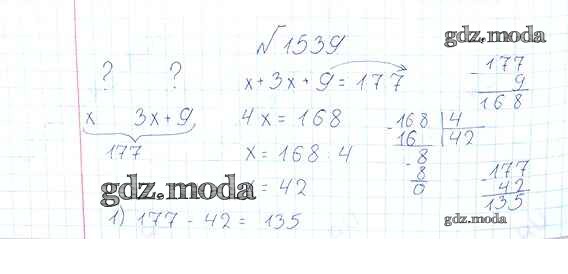 №1539
gdz.moda
? ?
x+3x+9=177
x 3x+9
177
4x=168
x=168:4
x=42
1) 177-42=135
177
- 9
168
-168 4
16 42
-8
8
0
-177
42
135
gdz.moda
gdz.moda